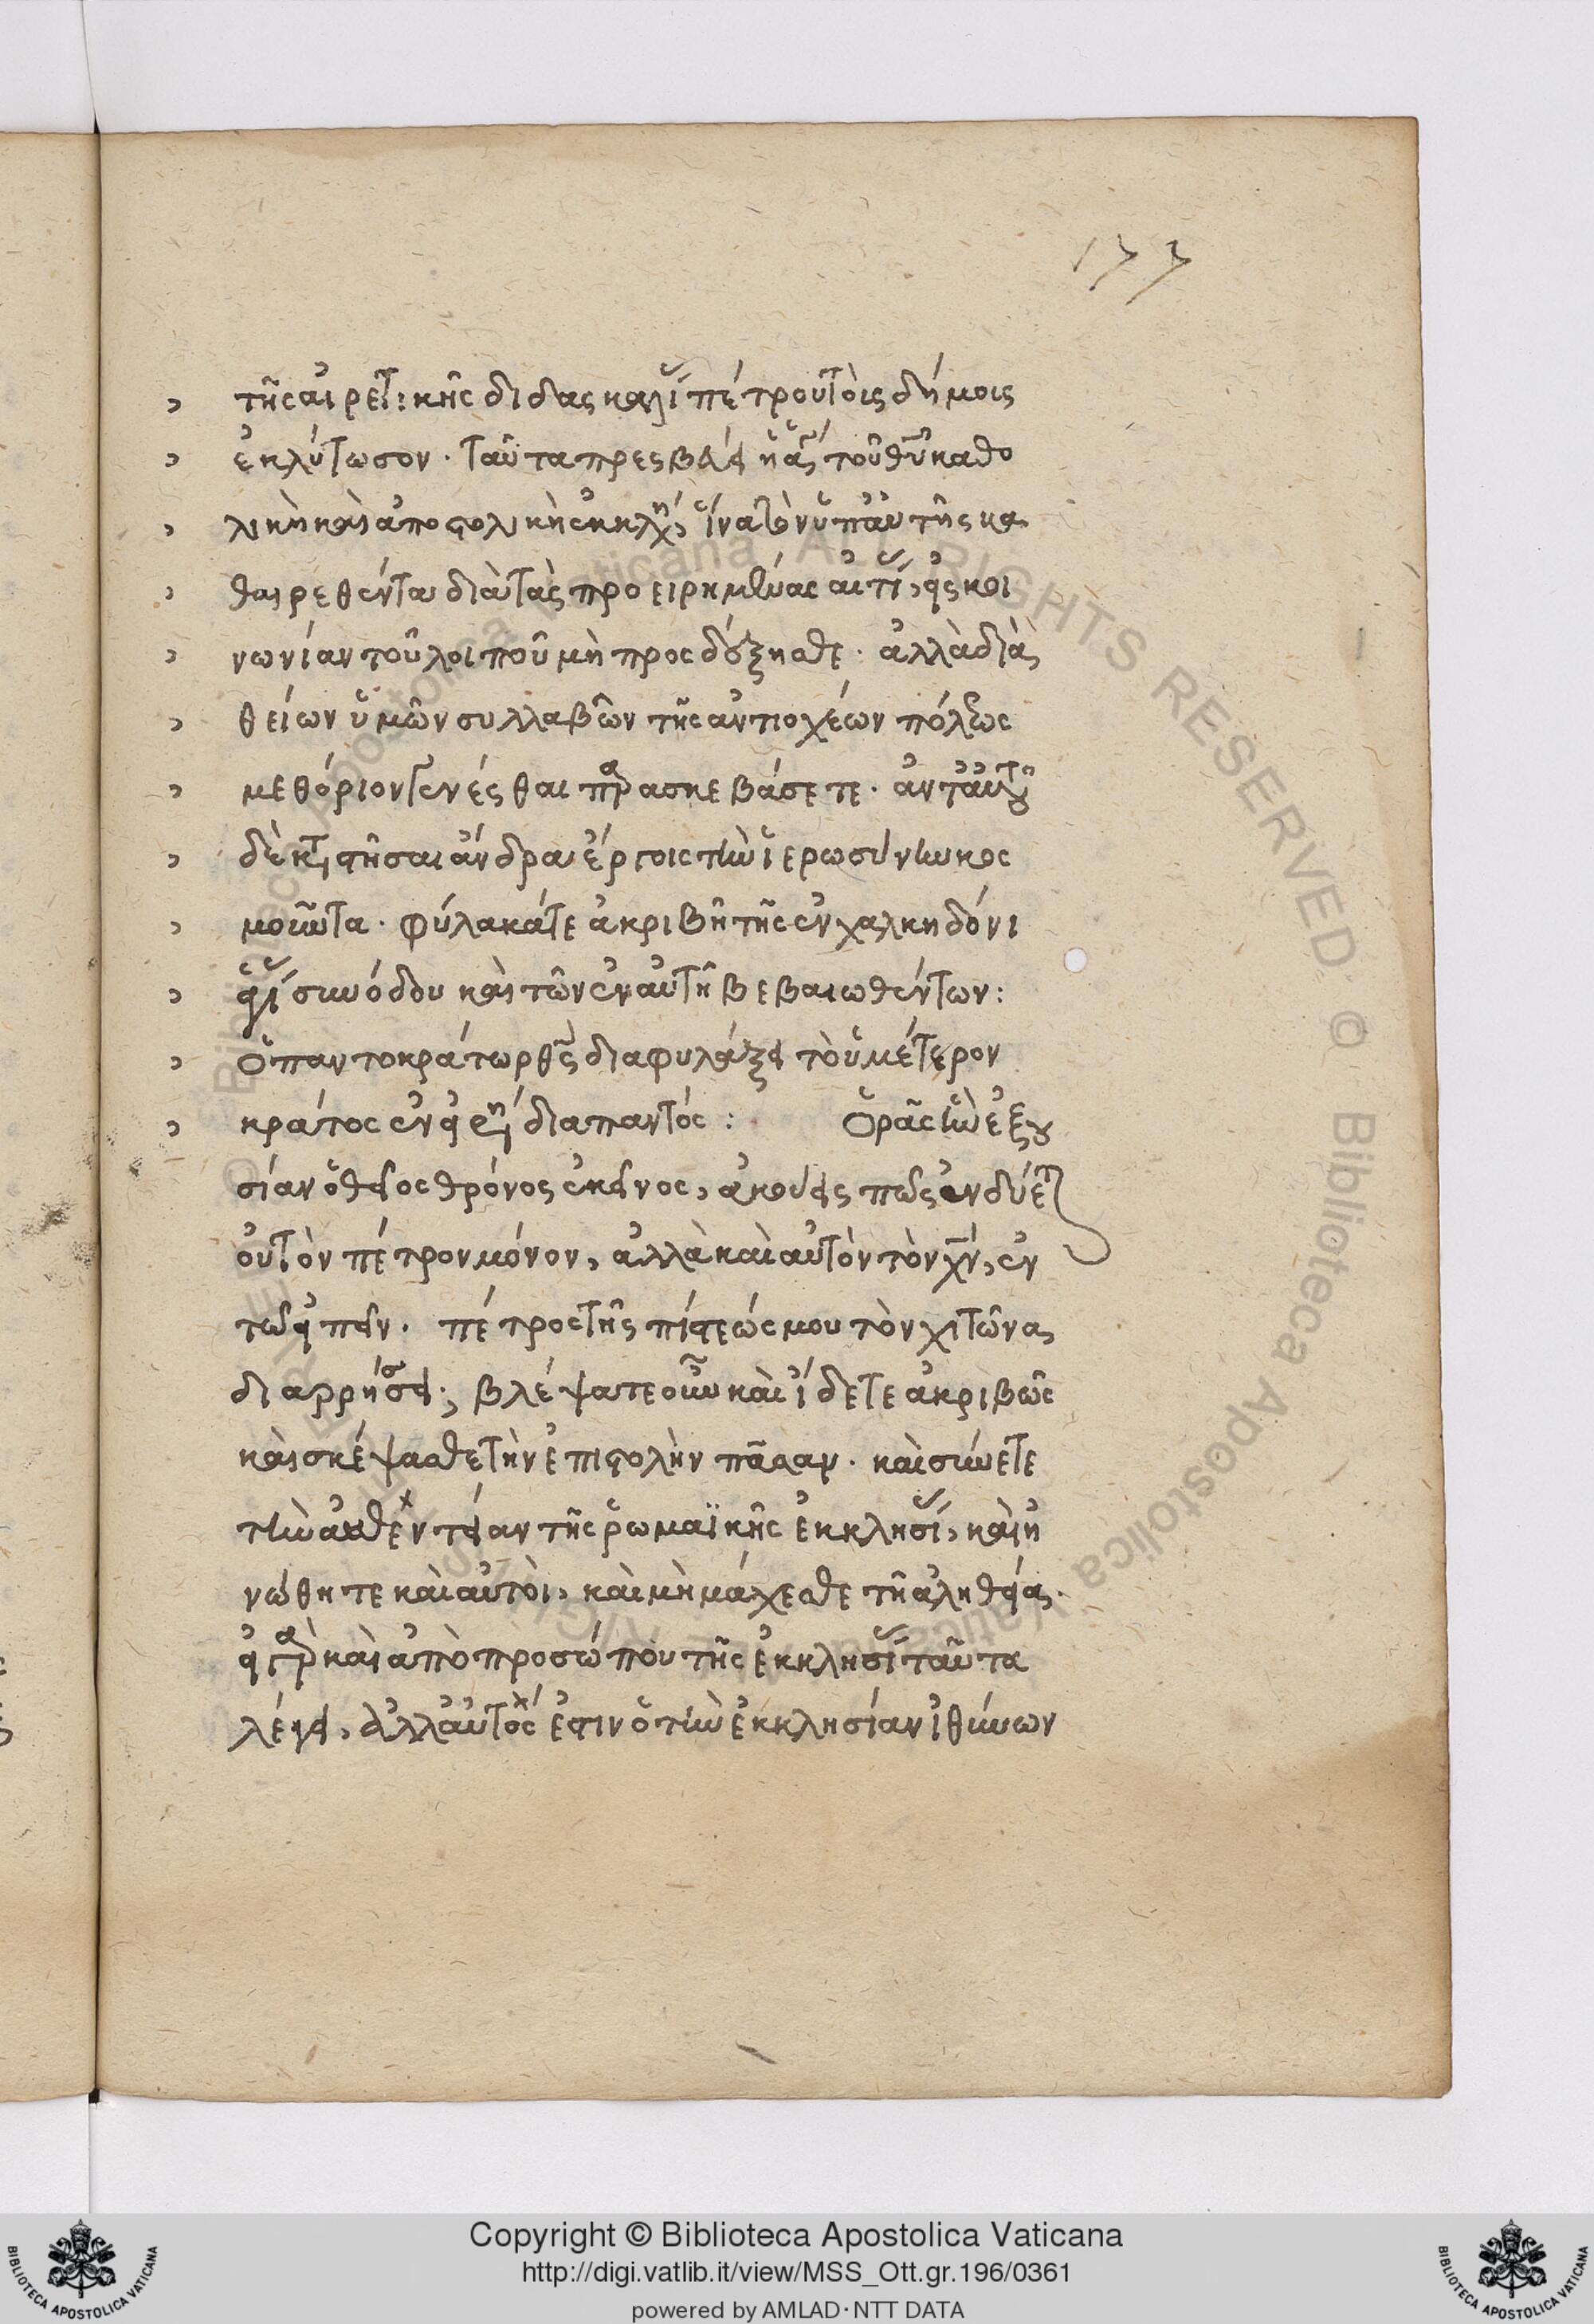 177
τῆς αἱρετικῆς διδασκαλί πέτρου τοῖς δήμοις
ἐκλύτωσον. ταῦτα πρεσβεύει ἡ ἁγί τοῦ θυ καθο
λικὴ καὶ ἀποστολικὴ ἐκκλη, ἵνα τὸν ὑπ' αὐτῆς κα
θαιρεθέντα διὰ τὰς προειρημένας αἰτί, εἰς κοι
νωνίαν τοῦ λοιποῦ μὴ προσδέξησθε. ἀλλὰ διὰ
θείων ὑμῶν συλλαβῶν τῆς ἀντιοχέων πόλεως
μεθόριον γενέσθαι παρασκεβάσετε. ἀντ' αὐτοῦ
δὲ καταστῆσαι ἄνδρα ἔργοις τὴν ἱερωσύνην κος
μοῦντα. φύλακά τε ἀκριβῆ τῆς ἐν χαλκηδόνι
ἁγί συνόδου καὶ τῶν ἐν αὐτῆ βεβαιωθέντων:
Ὁ παντοκράτωρ θς διαφυλάξει τὸ ὑμέτερον
κράτος ἐν εἰρή διαπαντός: Ὁρᾶς ἣν ἐξου
σίαν ὁ θεῖος θρόνος ἐκεῖνος, ἀκούεις πῶς ἐνδύετ
οὐ τὸν πέτρον μόνον, ἀλλὰ καὶ αὐτὸν τὸν χν, ἐν
τῶ εἰπεῖν. πέτρος τῆς πίστεώς μου τὸν χιτῶνα
διαρρήσσει; βλέψατε οὖν καὶ ἴδετε ἀκριβῶς
καὶ σκέψασθε τὴν ἐπιστολὴν πᾶσαν. καὶ σύνετε
τὴν αὐθεντείαν τῆς ῥωμαϊκῆς ἐκκλησί, καὶ ἡ
νώθητε καὶ αὐτοὶ, καὶ μὴ μάχεσθε τῆ ἀληθεία.
εἰ γὰρ καὶ ἀπὸ προσώπου τῆς ἐκκλησί ταῦτα
λέγει, ἀλλ' αὐτός ἐστιν ὁ τὴν ἐκκλησίαν ἰθύνων
Copyright © Biblioteca Apostolica Vaticana
http://digi.vatlib.it/view/MSS_Ott.gr.196/0361
powered by AMLAD·NTT DATA